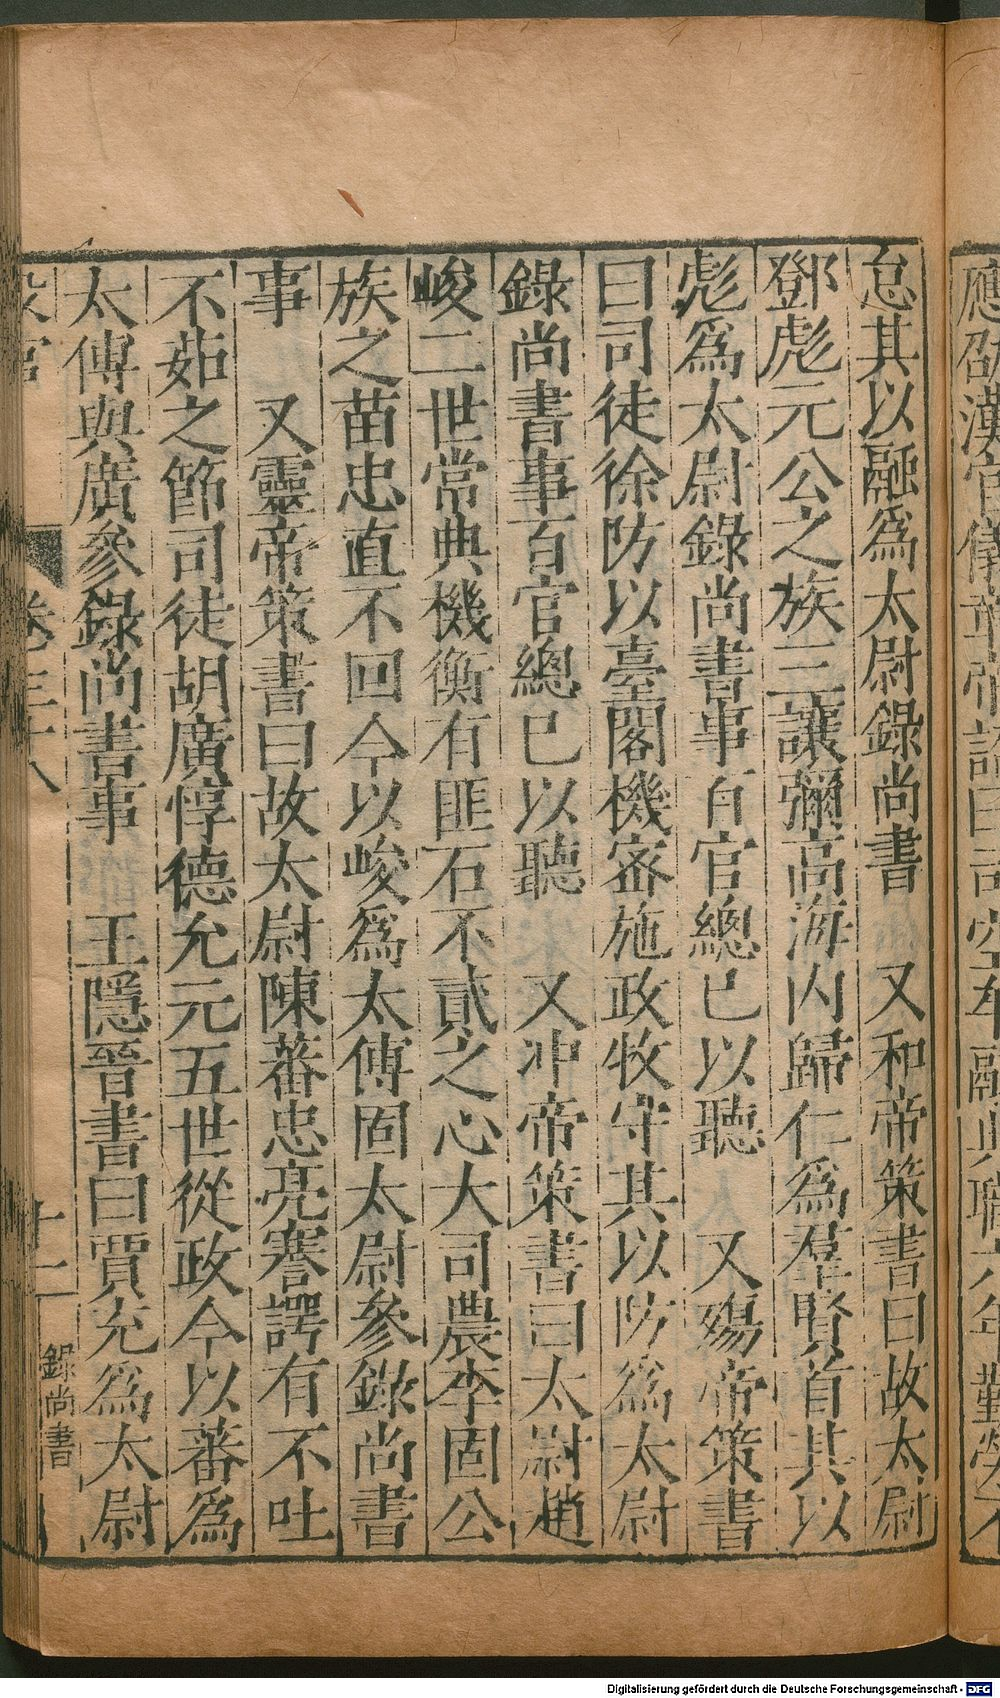 應劭漢官儀章帝詔曰司空牟融典職六年勤勞不
怠其以融爲太尉錄尚書　又和帝策書曰故太尉
鄧彪元公之族三讓彌高海内歸仁爲羣賢首其以
彪爲太尉錄尚書事百官總已以聽　又殤帝策書
曰司徒徐防以臺閣機密施政牧守其以防爲太尉
錄尚書事百官總已以聽　又冲帝策書曰太尉趙
峻二世常典機衡有匪石不貳之心大司農李固公
族之苗忠直不回今以峻爲太傅固太尉參錄尚書
事　又靈帝策書曰故太尉陳蕃忠亮謇諤有不吐
不茹之節司徒胡廣惇德允元五世從政今以蕃爲
太傅與廣參錄尚書事　王隱晉書曰賈充爲太尉
設官
卷三十八
十一
錄尚書
Digitalisierung gefördert durch die Deutsche Forschungsgemeinschaft - DFG